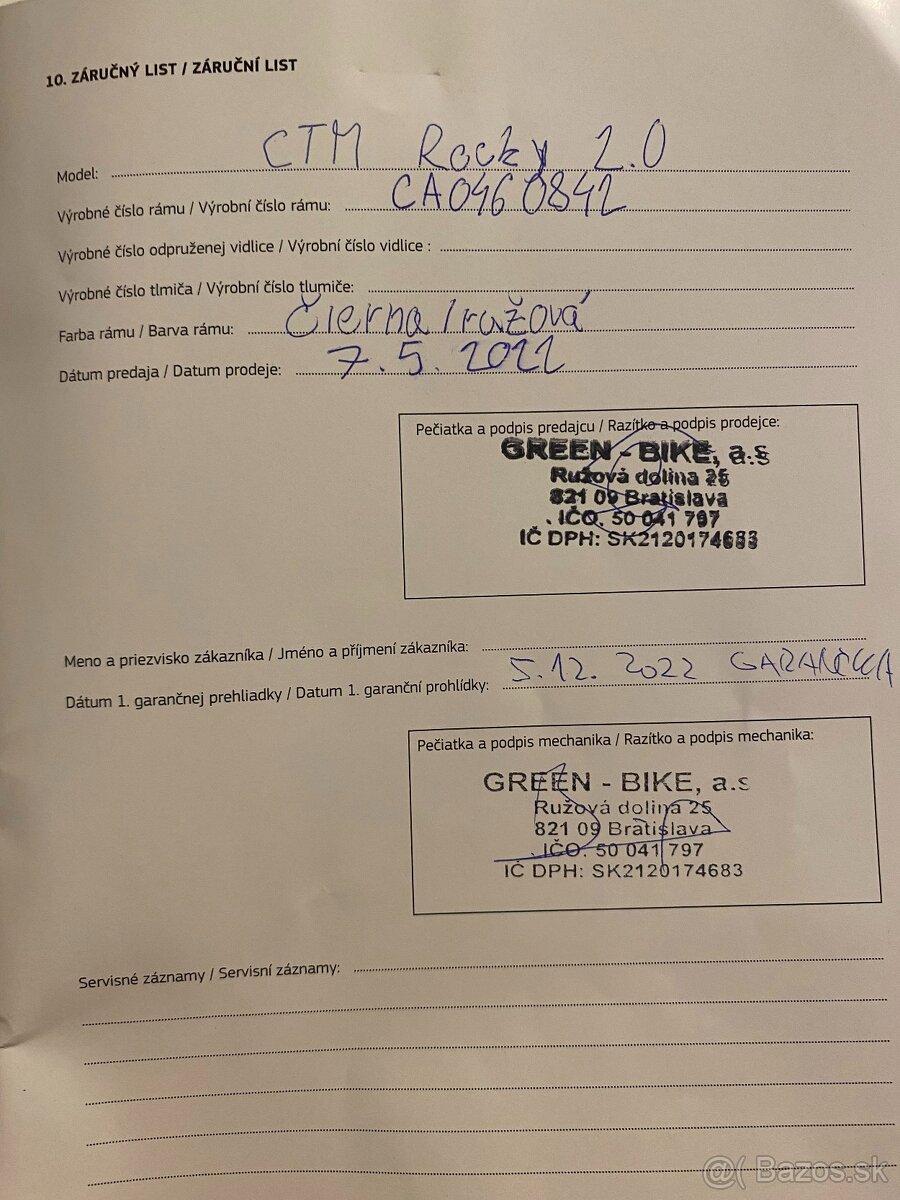 10. ZÁRUČNÝ LIST / ZÁRUČNÍ LIST
Model: CTM Rocky 2.0
Výrobné číslo rámu / Výrobní číslo rámu: CA0460842
Výrobné číslo odpruženej vidlice / Výrobní číslo vidlice :
Výrobné číslo tlmiča / Výrobní číslo tlumiče:
Farba rámu / Barva rámu: Čierna / ružová
Dátum predaja / Datum prodeje: 7.5.2022
Pečiatka a podpis predajcu / Razítko a podpis prodejce:
GREEN - BIKE, a.s
Ružová dolina 25
821 09 Bratislava
IČO. 50 041 797
IČ DPH: SK2120174683
Meno a priezvisko zákazníka / Jméno a příjmení zákazníka:
Dátum 1. garančnej prehliadky / Datum 1. garanční prohlídky: 5.12. 2022 GARANČKA
Pečiatka a podpis mechanika / Razítko a podpis mechanika:
GREEN - BIKE, a.s
Ružová dolina 25
821 09 Bratislava
IČO. 50 041 797
IČ DPH: SK2120174683
Servisné záznamy / Servisní záznamy:
@( Bazos.sk